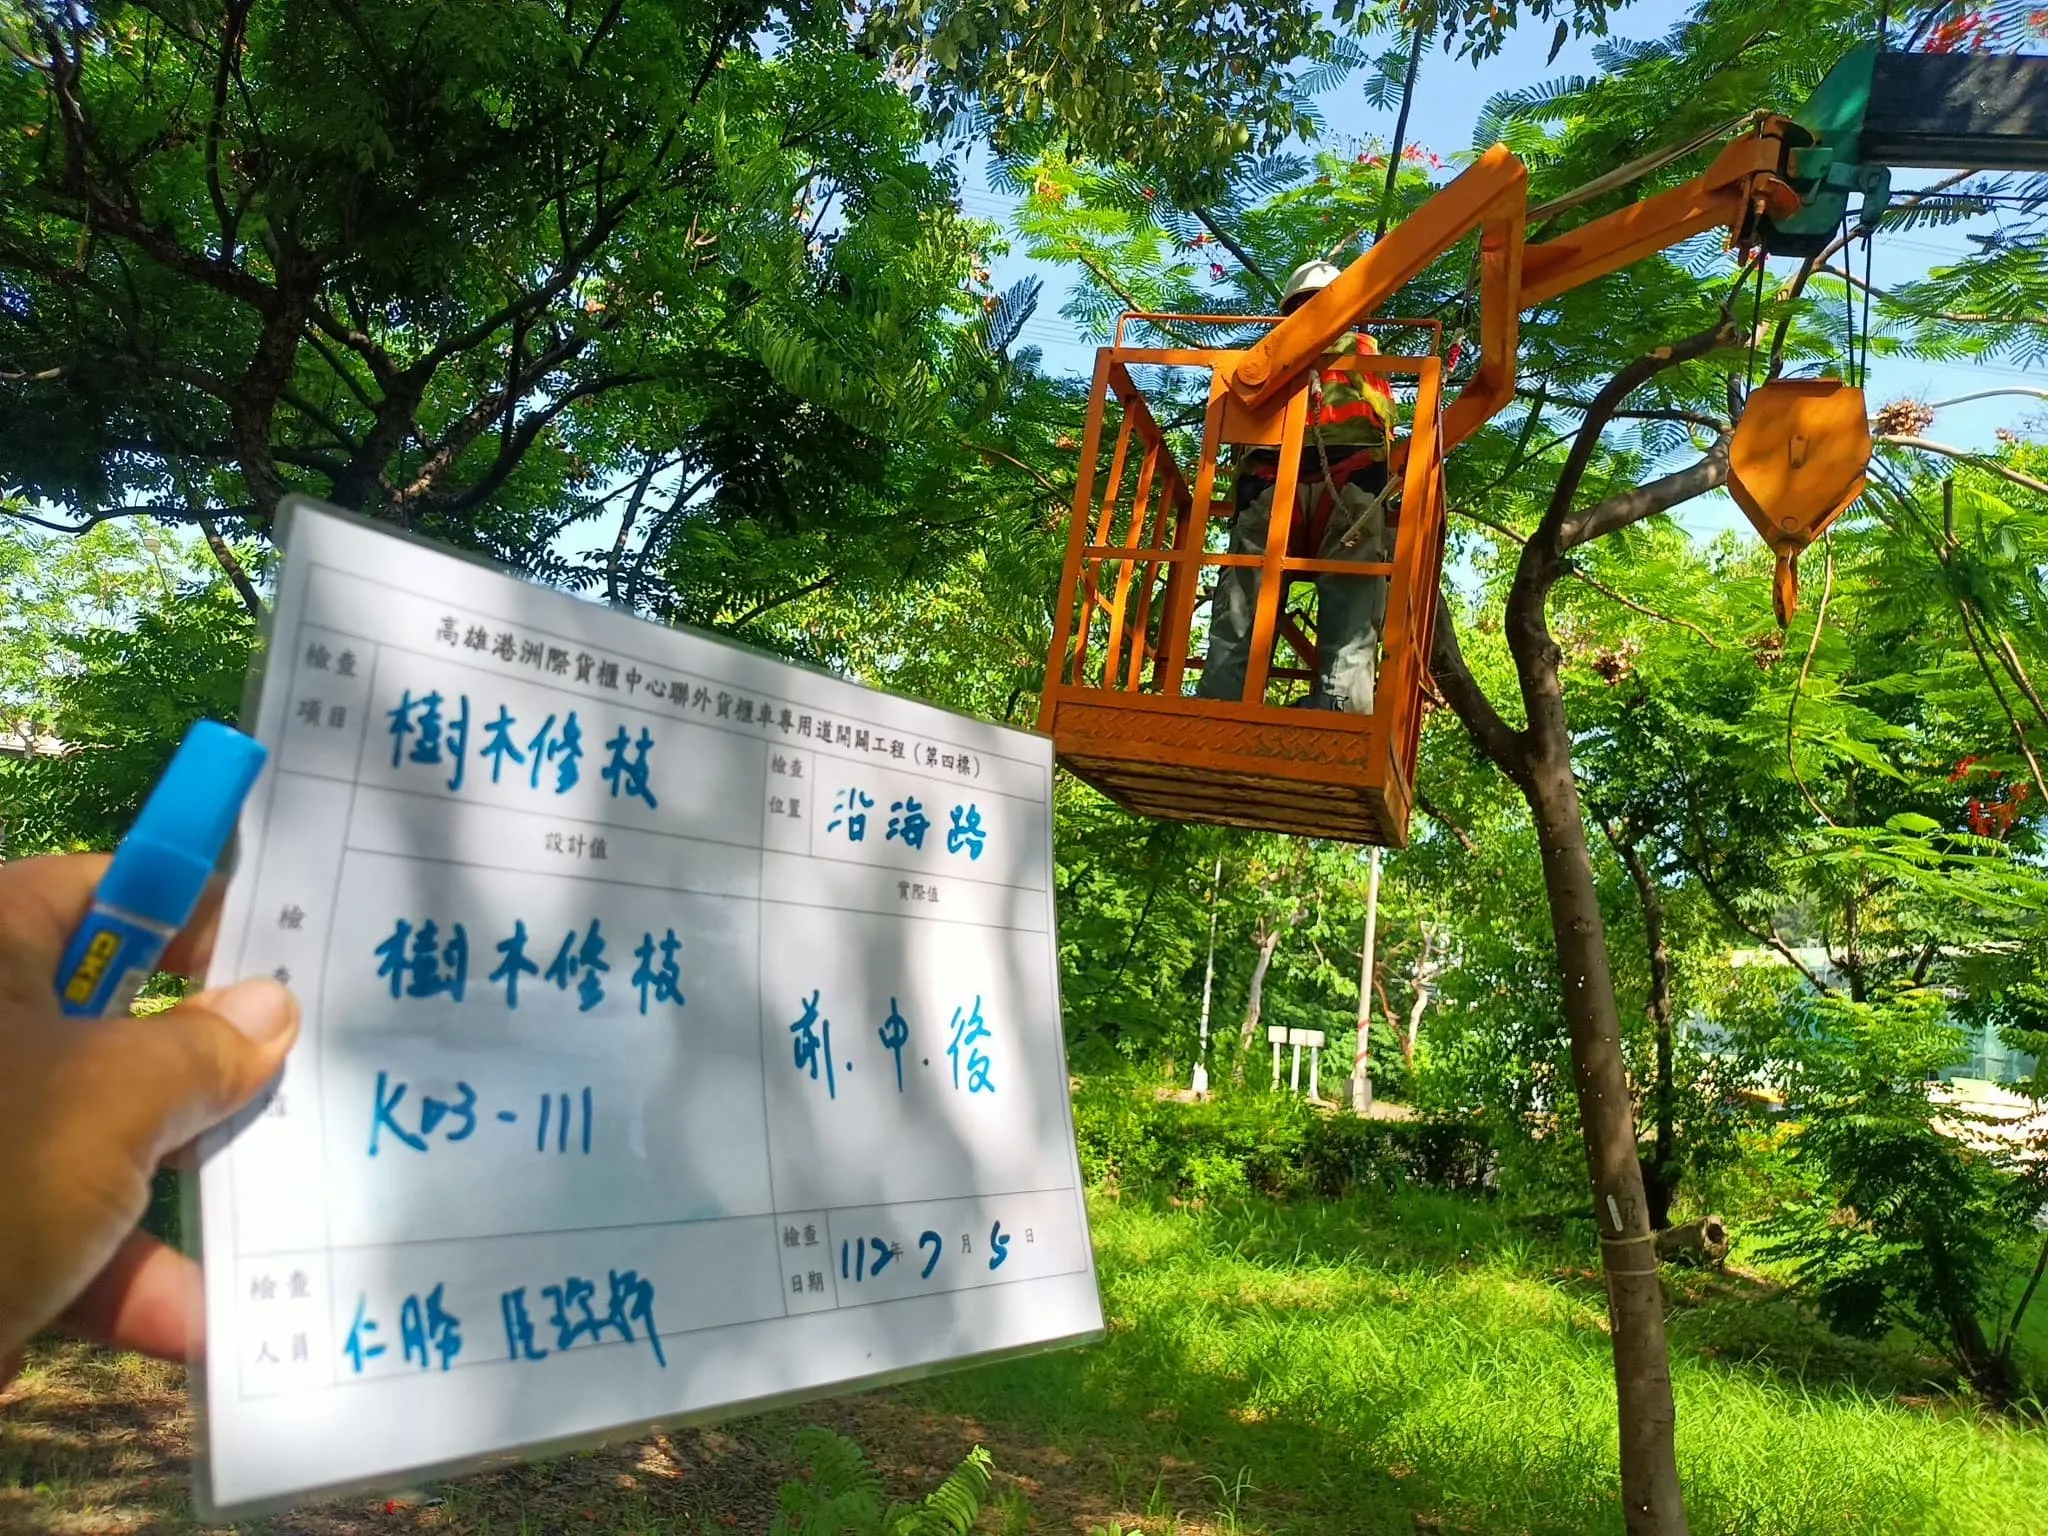 高雄港洲際貨櫃中心聯外貨櫃車專用道開闢工程(第四標)
檢查項目
樹木修枝
檢查位置
沿海路
設計值
實際值
檢
樹木修枝
K03-111
前.中.後
檢查人員
仁勝
檢查日期
112年7月5日